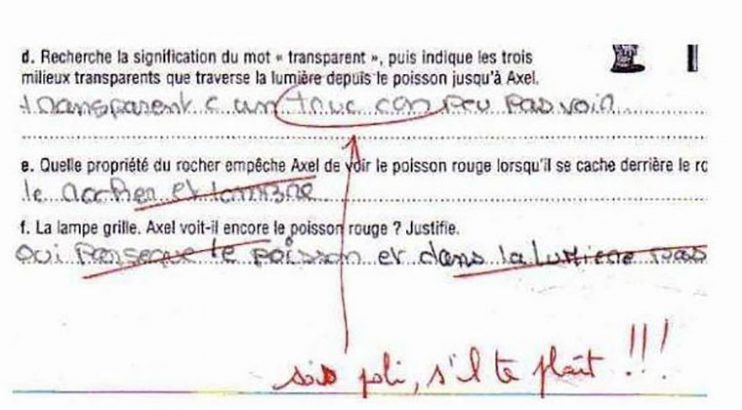 d. Recherche la signification du mot « transparent », puis indique les trois
milieux transparents que traverse la lumière depuis le poisson jusqu'à Axel.
transparent c un truc con peu pas voir
e. Quelle propriété du rocher empêche Axel de voir le poisson rouge lorsqu'il se cache derrière le ro
le rocher et
f. La lampe grille. Axel voit-il encore le poisson rouge ? Justifie.
Oui parseque le poisson et dans la lumiere pas
sois poli, s'il te plaît !!!